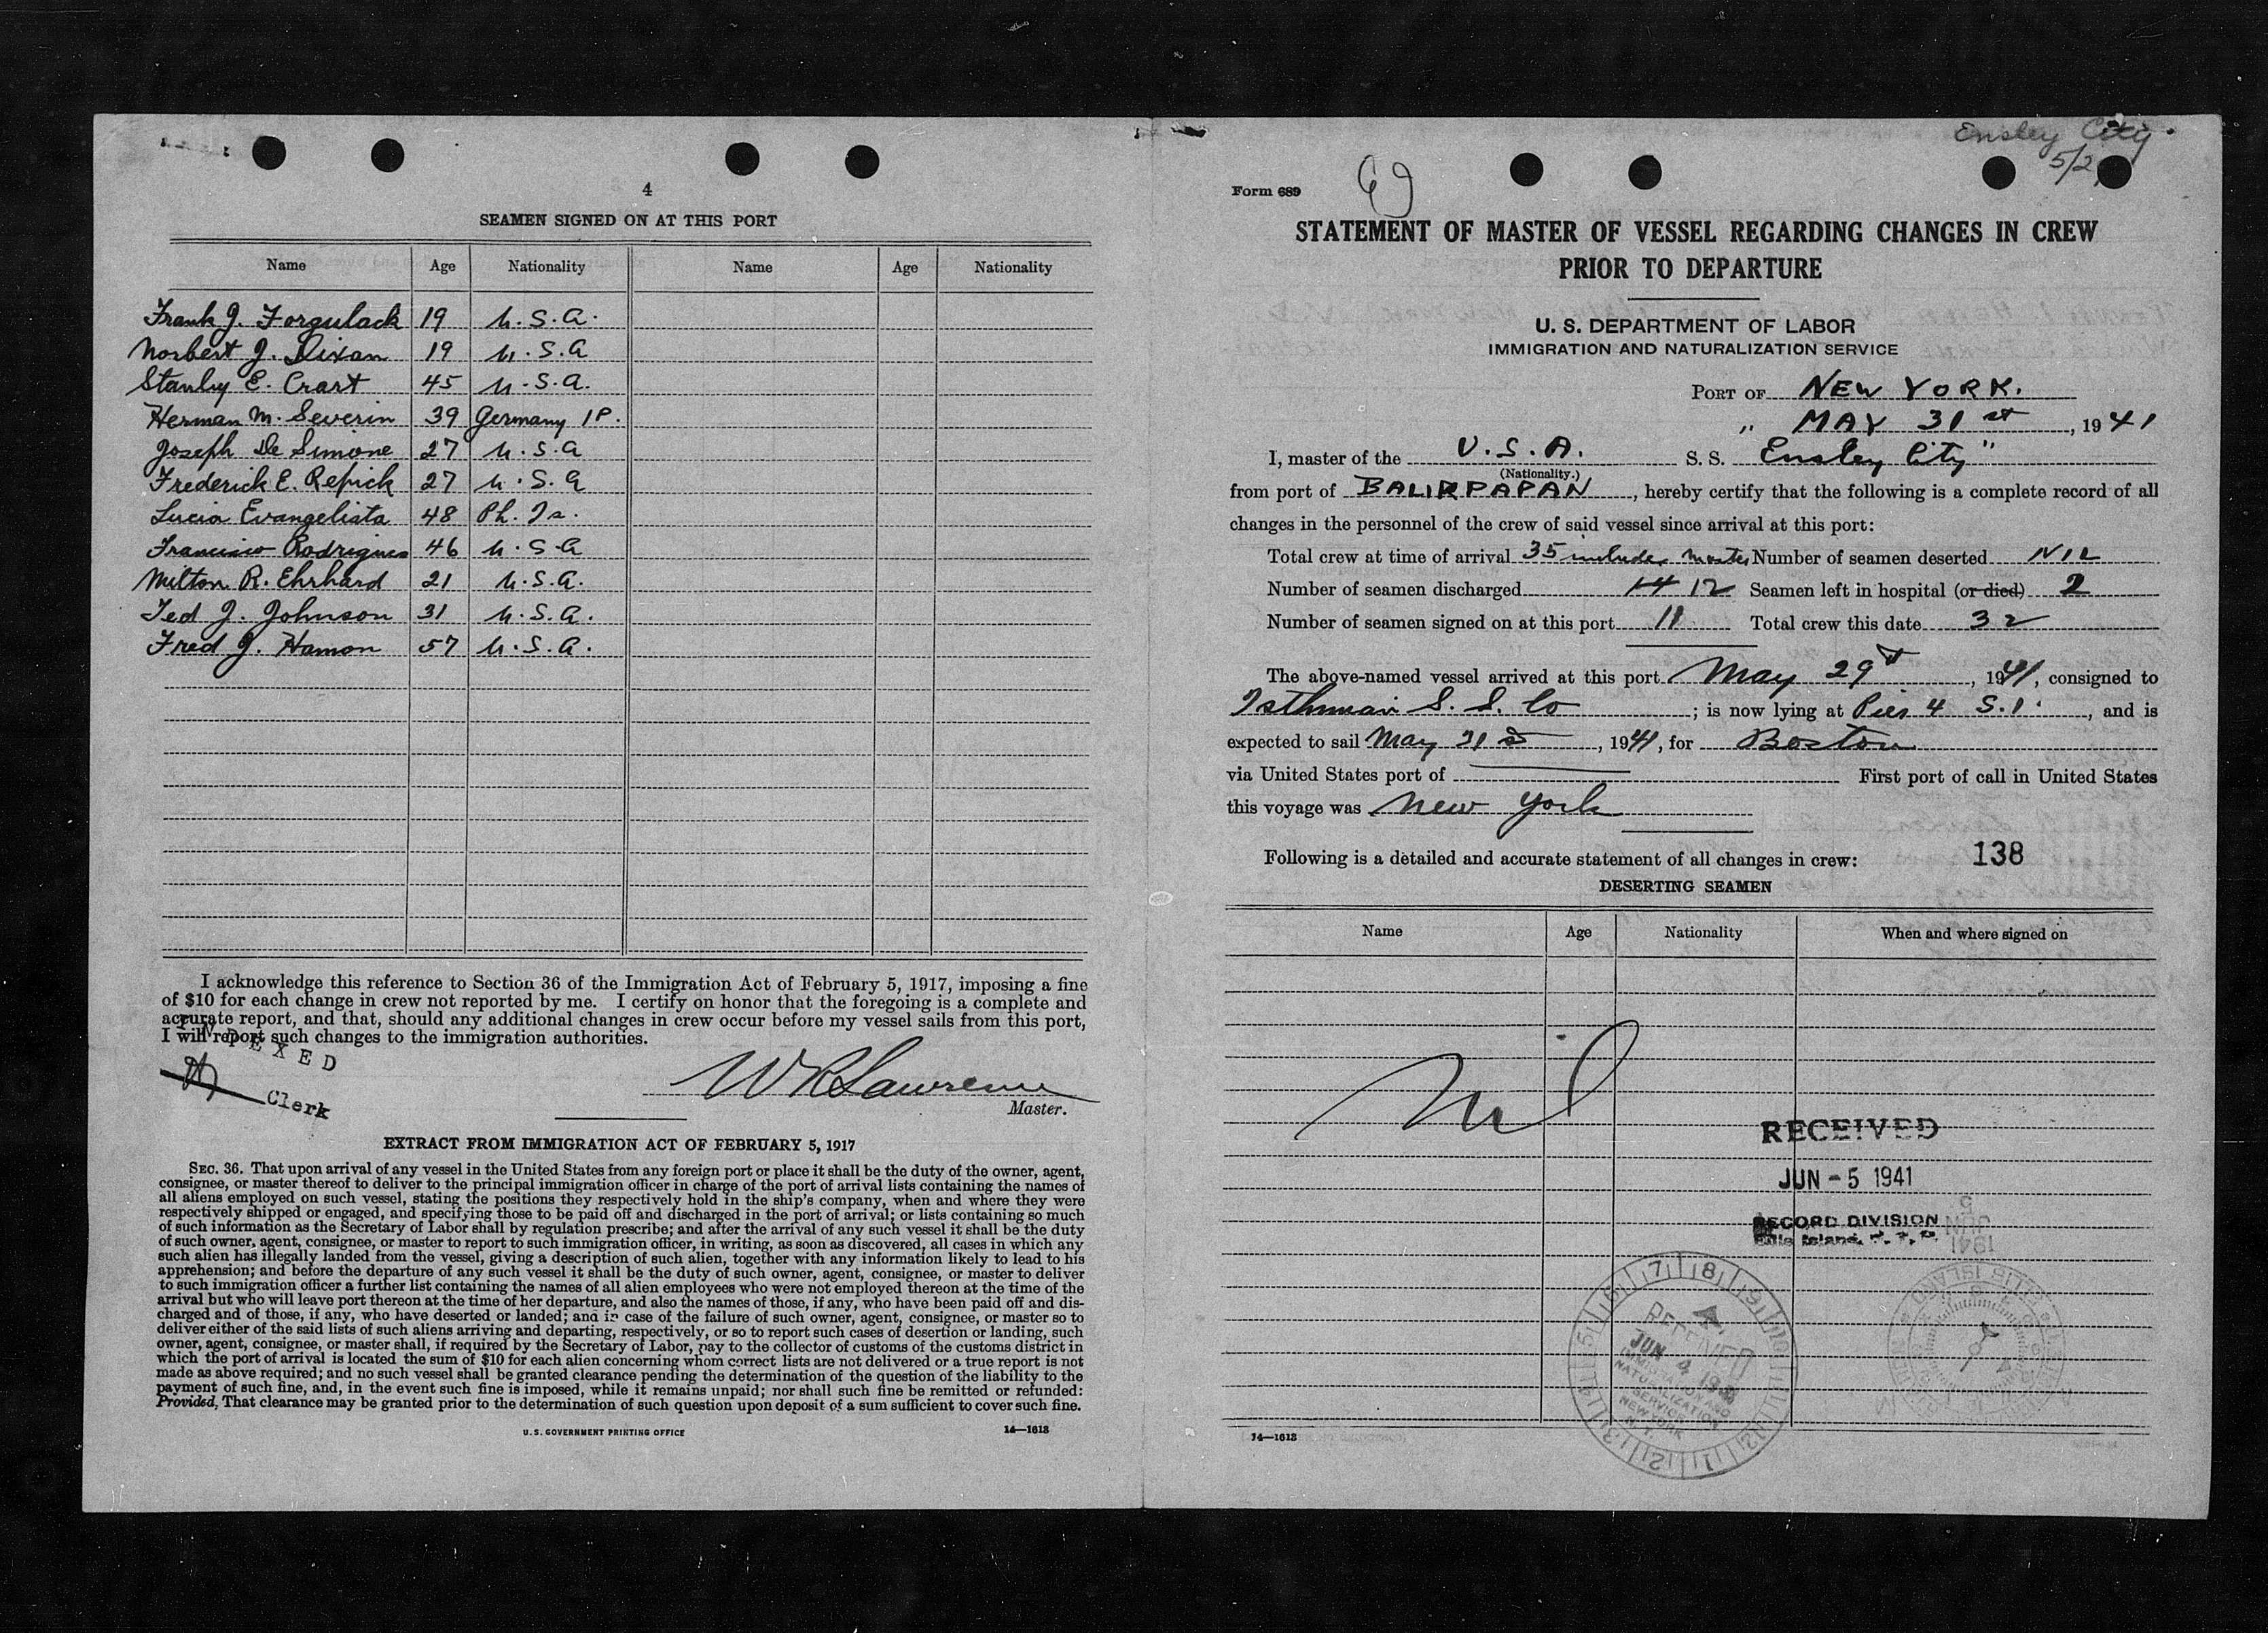 4
SEAMEN SIGNED ON AT THIS PORT
Name Age Nationality Name Age Nationality
Frank J. Forgulack 19 U.S.A.
Norbert J. Dixan 19 U.S.A
Stanley E. Crart 45 U.S.A.
Herman M. Severin 39 Germany 1P.
Joseph De Simone 27 U.S.A
Frederick E. Repick 27 U.S.A
Lucio Evangelista 48 Ph. Is.
Francisco Rodrigues 46 U.S.A
Milton R. Ehrhard 21 U.S.A.
Ted J. Johnson 31 U.S.A.
Fred J. Hamon 57 U.S.A.
I acknowledge this reference to Section 36 of the Immigration Act of February 5, 1917, imposing a fine
of $10 for each change in crew not reported by me. I certify on honor that the foregoing is a complete and
accurate report, and that, should any additional changes in crew occur before my vessel sails from this port,
I will report such changes to the immigration authorities.
INDEXED
Clerk
W R Lawrence
Master.
EXTRACT FROM IMMIGRATION ACT OF FEBRUARY 5, 1917
SEC. 36. That upon arrival of any vessel in the United States from any foreign port or place it shall be the duty of the owner, agent,
consignee, or master thereof to deliver to the principal immigration officer in charge of the port of arrival lists containing the names of
all aliens employed on such vessel, stating the positions they respectively hold in the ship's company, when and where they were
respectively shipped or engaged, and specifying those to be paid off and discharged in the port of arrival; or lists containing so much
of such information as the Secretary of Labor shall by regulation prescribe; and after the arrival of any such vessel it shall be the duty
of such owner, agent, consignee, or master to report to such immigration officer, in writing, as soon as discovered, all cases in which any
such alien has illegally landed from the vessel, giving a description of such alien, together with any information likely to lead to his
apprehension; and before the departure of any such vessel it shall be the duty of such owner, agent, consignee, or master to deliver
to such immigration officer a further list containing the names of all alien employees who were not employed thereon at the time of the
arrival but who will leave port thereon at the time of her departure, and also the names of those, if any, who have been paid off and dis-
charged and of those, if any, who have deserted or landed; and in case of the failure of such owner, agent, consignee, or master so to
deliver either of the said lists of such aliens arriving and departing, respectively, or so to report such cases of desertion or landing, such
owner, agent, consignee, or master shall, if required by the Secretary of Labor, pay to the collector of customs of the customs district in
which the port of arrival is located the sum of $10 for each alien concerning whom correct lists are not delivered or a true report is not
made as above required; and no such vessel shall be granted clearance pending the determination of the question of the liability to the
payment of such fine, and, in the event such fine is imposed, while it remains unpaid; nor shall such fine be remitted or refunded:
Provided, That clearance may be granted prior to the determination of such question upon deposit of a sum sufficient to cover such fine.
U. S. GOVERNMENT PRINTING OFFICE 14—1613
Ensley City
5/2
Form 689
STATEMENT OF MASTER OF VESSEL REGARDING CHANGES IN CREW
PRIOR TO DEPARTURE
U. S. DEPARTMENT OF LABOR
IMMIGRATION AND NATURALIZATION SERVICE
PORT OF NEW YORK.
" MAY 31st, 1941
I, master of the U.S.A. S. S. Ensley City"
(Nationality.)
from port of BALIKPAPAN, hereby certify that the following is a complete record of all
changes in the personnel of the crew of said vessel since arrival at this port:
Total crew at time of arrival 35 includes master Number of seamen deserted NIL
Number of seamen discharged 14 12 Seamen left in hospital (or died) 2
Number of seamen signed on at this port 11 Total crew this date 32
The above-named vessel arrived at this port May 29, 1941, consigned to
Isthmian S. S. Co; is now lying at Pier 4 S.I., and is
expected to sail May 31st, 1941, for Boston
via United States port of First port of call in United States
this voyage was New York
Following is a detailed and accurate statement of all changes in crew: 138
DESERTING SEAMEN
Name Age Nationality When and where signed on
Nil
RECEIVED
JUN - 5 1941
RECORD DIVISION
Ellis Island,
RECEIVED
JUN 4
IMMIGRATION AND
NATURALIZATION
SERVICE
NEW YORK
14—1613